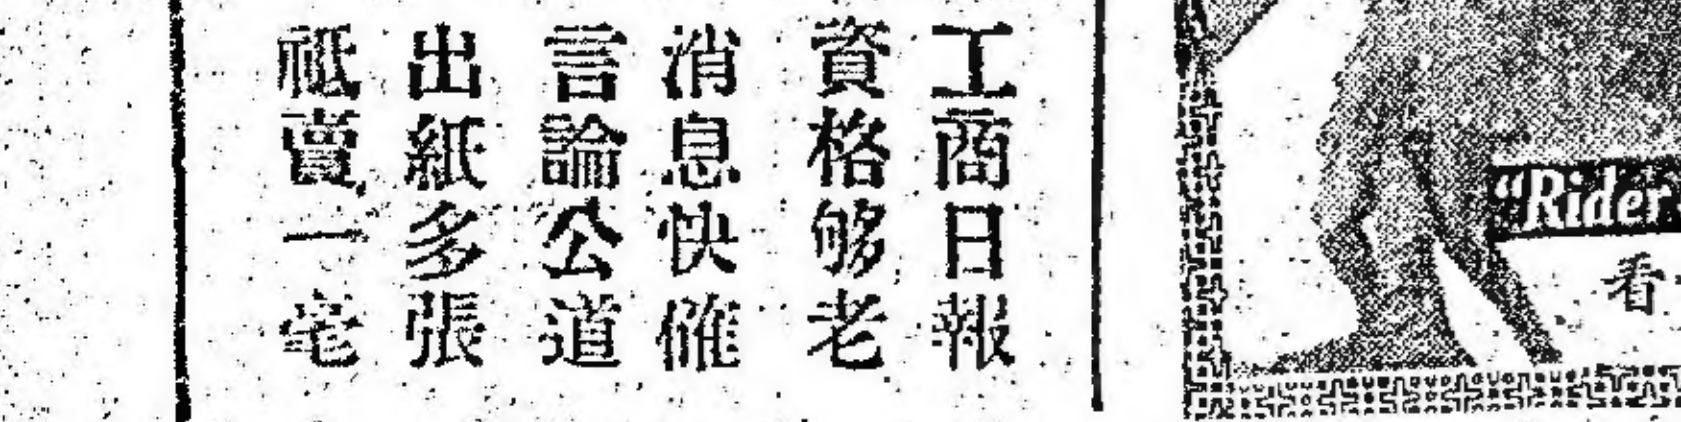 工商日報
資格够老
消息快確
言論公道
出紙多張
祗賣一毫
"Rider
看